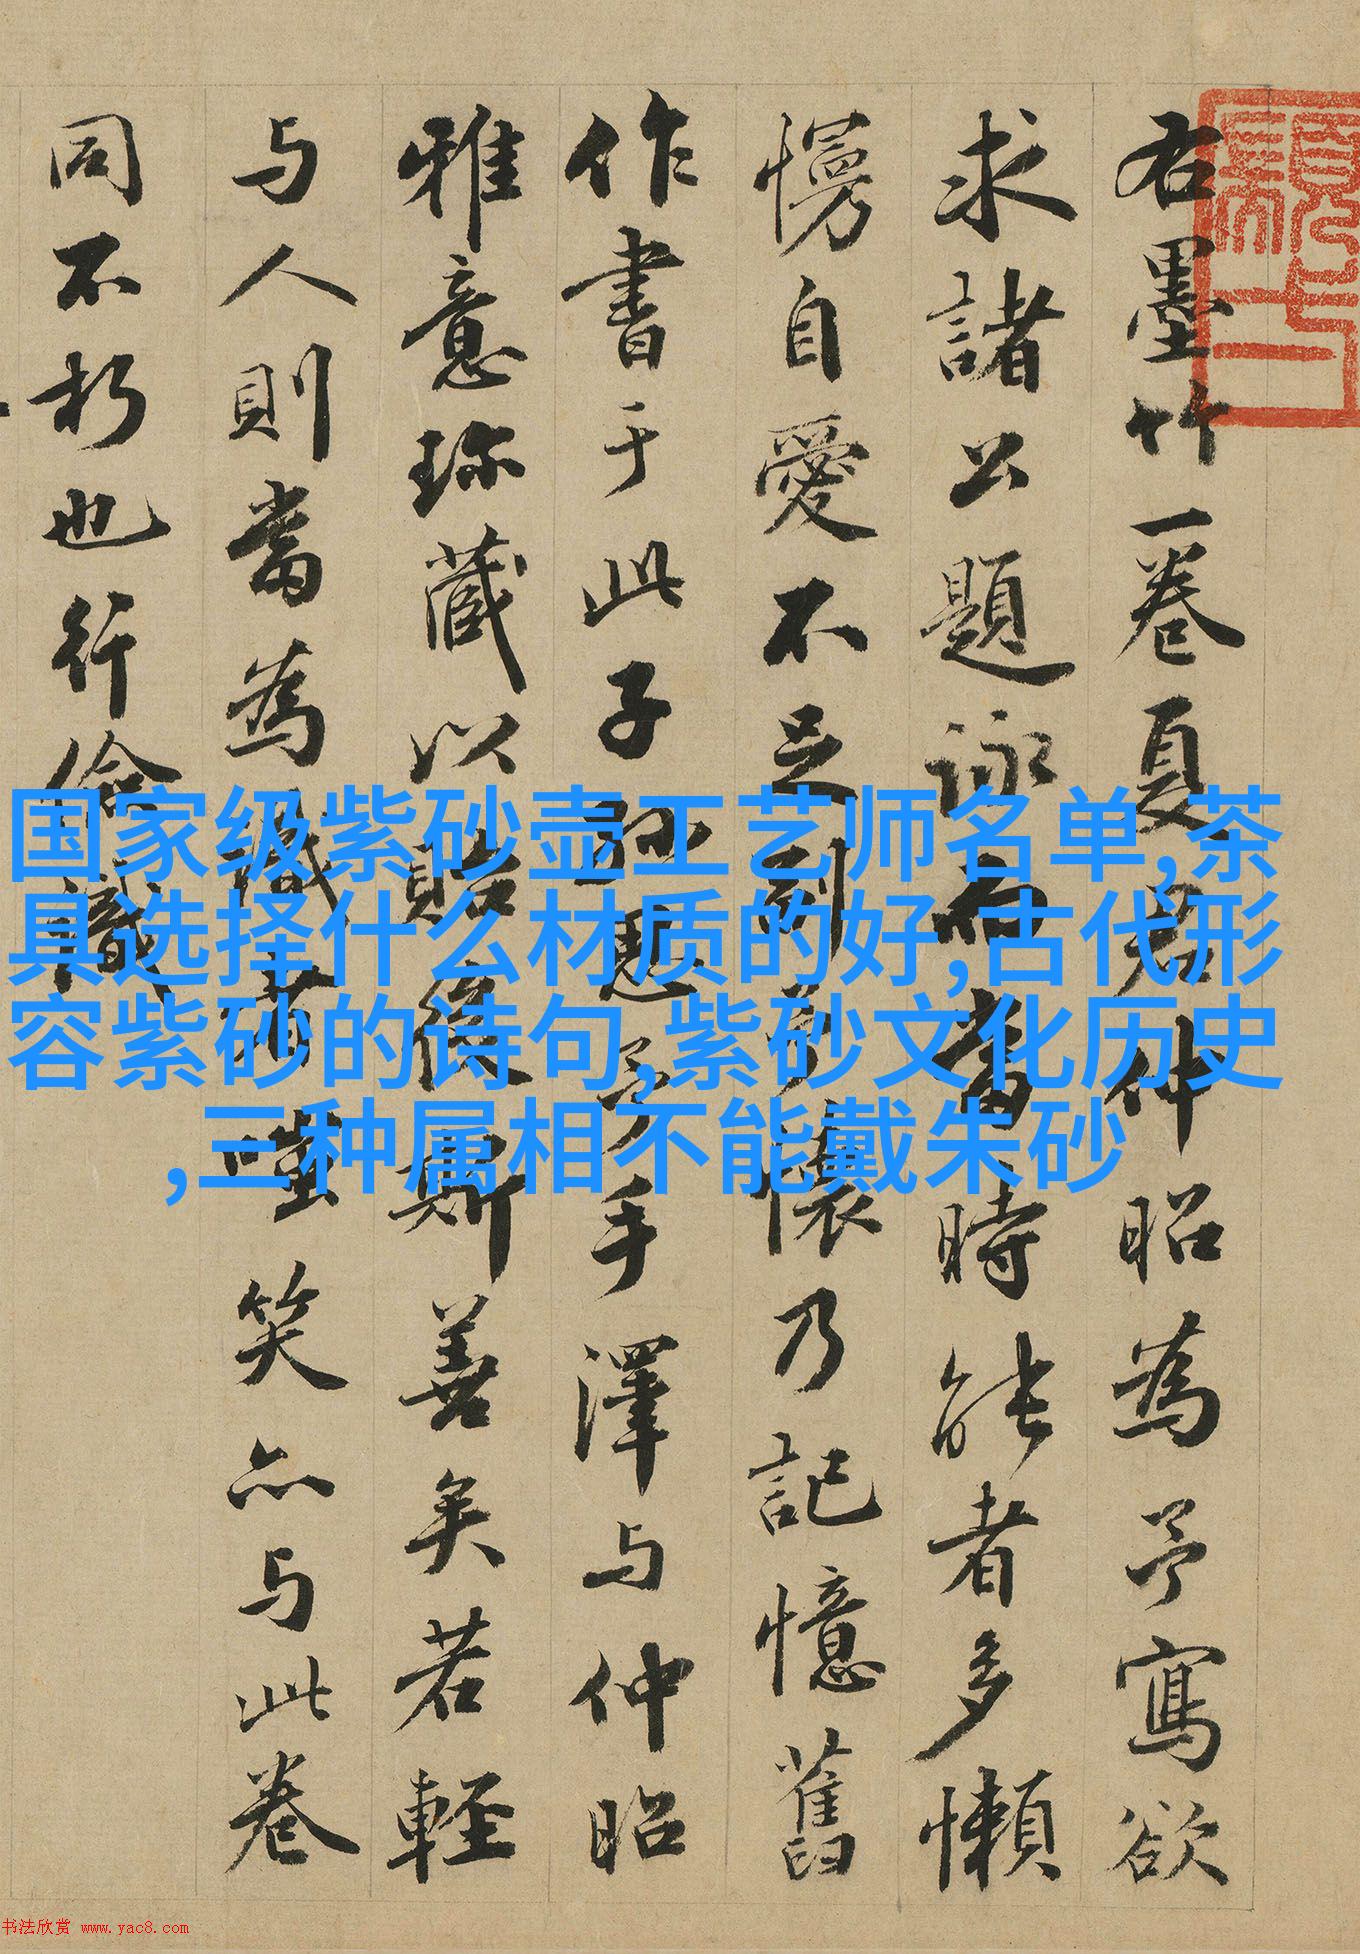 右墨竹一卷夏君仲昭為予寫欲
求諸公題詠而當時能者多懶
慢自愛不足予懷乃記憶舊
作書于此子孫思予手澤与仲昭
雅意珎藏以貽後斯善矣若輕
与人則當為識者嗤笑亦与此卷
同不朽也行儉識
国家级紫砂壶工艺师名单,茶
具选择什么材质的好,古代形
容紫砂的诗句,紫砂文化历史
,三种属相不能戴朱砂
书法欣赏 www.yac8.com